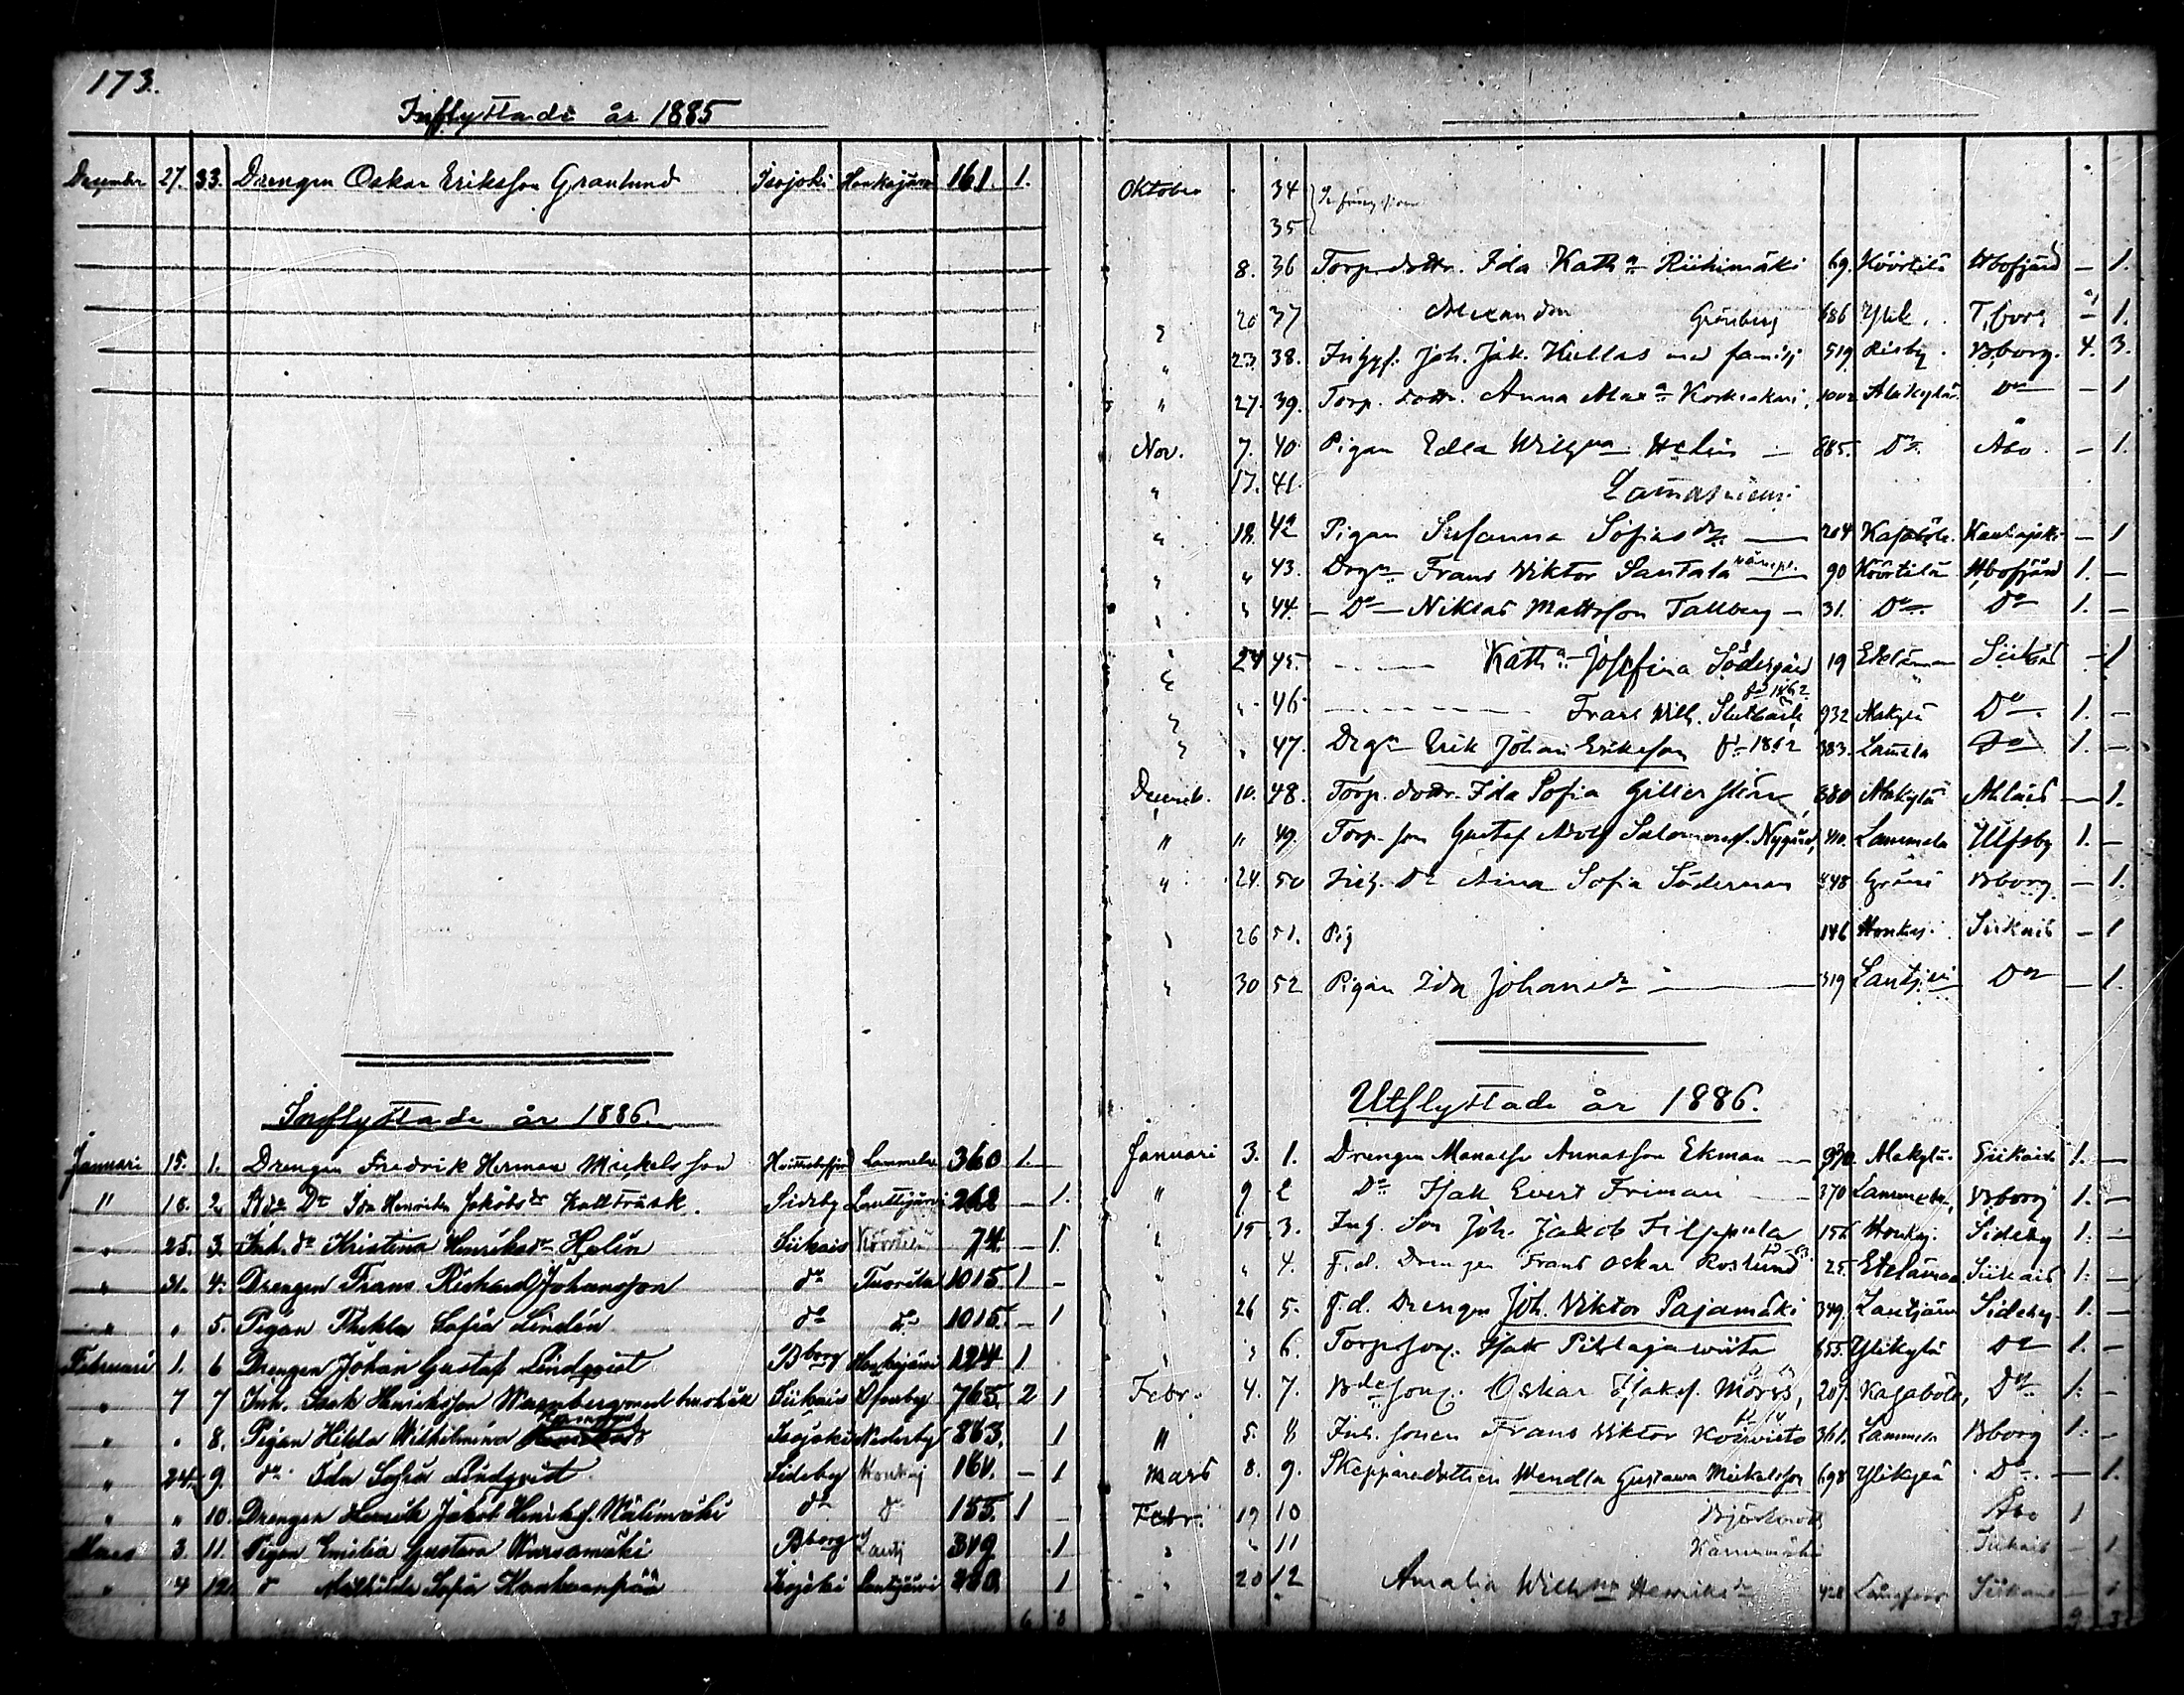 173.
Inflyttade år 1885
December 27. 33. Drengen Oskar Eriksson Granlund Isojoki Honkajärvi 161. 1.
Inflyttade år 1886.
Januari 15. 1. Drengen Fredrik Herman Mickelsson Lammela 360 1.
" 18. 2. Ida Henrika Jakobsdr Kallträsk. Sideby Lauttijärvi 268 — 1.
" 25. 3. Inh. dr Kristina Henriksdr Helin Siikais Köörtilä 74. — 1.
" 31. 4. Drengen Frans Rickard Johansson do Tuorila 1015. 1 –
" " 5. Pigan Thekla Sofia Lindén do do 1015. — 1
Februari 1. 6 Drengen Johan Gustaf Lindqvist Bborg Honkajärvi 124 1.
" 7 7 Inh. Isak Henriksson Wagnberg med hustru Siikais 765. 2 1
" " 8. Pigan Hilda Wilhelmina Isojoki Nederby 863. 1
" 24. 9. do Ida Sofia Lindqvist Sideby Honkaj 161. — 1
" " 10. Drengen Henrik Jakob Henrikss. Wälimäki do do 155. 1 –
Mars 3. 11. Pigan Emilia Gustava Bborg Lautj 319. 1
" 4 12. d Mathilda Sofia Isojoki Lautijärvi 1
6 8
Oktober 34
35
8. 36 Torp. dottr. Ida Katha Riihimäki 69. Köörtilä Hbofjärd — 1.
" 20 37 Alexandra Grönberg 686 Ylik. T,borg — 1.
" 23. 38. Inhys. Joh. Jak. Kullas med familj 519. Risby. Bborg. 4. 3.
" 27. 39. Torp. dottr. Anna Alexa 1002 Alakylä. Do — 1
Nov. 7. 40 Pigan Edla Wilhna Helin — 885. Do Åbo. — 1.
" 17. 41.
" 18. 42 Pigan Susanna Sofiasdr — 204 Kasaböle. Kankapää — 1
" " 43. Drgn Frans Viktor Santala 90 Köörtilä Hbofjärd 1. —
" " 44. – Do – Niklas Mattsson Tallberg – 31. Do Do 1. –
" 24 45. Katha Josefina Södergård 19 Etelämaa Siikais – 1
" " 46 fd 1862 Frans Wilh. 932 Alakylä Do 1. –
" " 47. Drgn Erik Johan Eriksson fd 1862 383. Lamela Do 1. –
Decemb. 10. 48. Torp. dottr. Ida Sofia 880 Alakylä Ahlais — 1.
" " 49. Torp. son Gustaf Adolf Salomonss. Nygård, 410. Lammela Ulfsby 1. –
" 24. 50 Inh. Dr Aina Sofia Söderman 448 Bborg — 1.
" 26 51. Pig 146 Honkaj. Siikais — 1
" 30 52 Pigan Ida Johansdr 319 Lautj Do — 1.
Utflyttade år 1886.
Januari 3. 1. Drengen Manasse Annasson Ekman — 930. Alakylä. Siikais 1. —
" 9 2 Do Isak Evert Friman — 370 Lammela, Bborg 1. –
" 15 3. Inh. Son Joh. Jakob Filppula 156 Honkaj. Sideby 1. –
" " 4. F.d. Drengen Frans Oskar Roslund 25. Etelämaa Siikais 1. —
" 26 5. F.d. Drengen Joh. Viktor Pajamäki 349. Lautjärvi Sideby. 1. –
" " 6. Torp. son. Isak Pihlajaviita 655. Ylikylä Do 1. –
Febr. 4. 7. Bdeson. Oskar Isaks. Morss, 207. Kasaböle, Do 1. –
" 5. 8 Inh. sonen Frans Viktor Koivisto 361. Lammela Bborg 1. –
Mars 8. 9. Skepparedottren Wendla Gustava Mickelsson 698 Ylikylä Do — 1.
Febr. 19 10 Åbo 1
" " 11 Siikais – 1
" 20 12 Amalia Wilhna Henriksdr 428 Siikais —
9 3